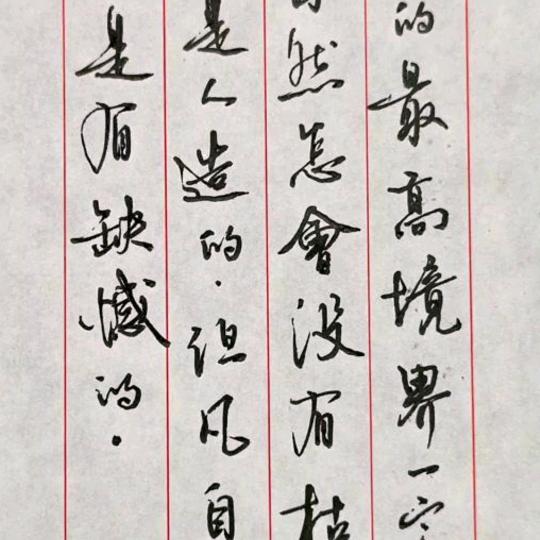 的最高境界一定
然怎會没有枯
是人造的.但凡自
是有缺憾的.